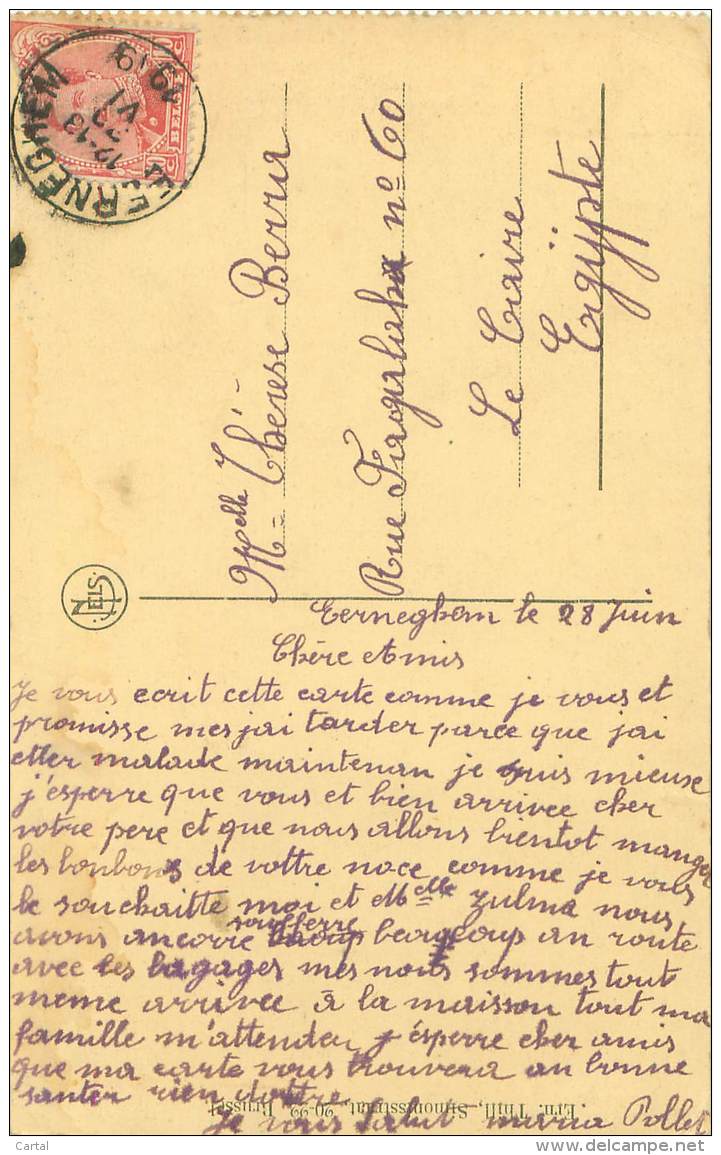 EERNEGHEM
12-13
VI
1919
BELG
Melle Thérèse Berra
Rue Faggalah no 60
Le Caire
Egÿpte
NELS
Eerneghem le 28 Juin
Chère Amis
Je vous ecrit cette carte comme je vous et
promisse mes jai tarder parce que jai
etter malade maintenan je suis mieuse
j'esperre que vous et bien arrivee cher
votre pere et que nous allons bientot manger
les bonbons de vottre noce comme je vous
le souchaitte moi et Melle Zulma nous
avons ancorre soufferre beaucoup an route
avec les bagages mes nous sommes tout
meme arrivee à la maisson tout ma
famille m'attender j'ésperre cher amis
que ma carte vous trouvera an bonne
santer rien dottre
Ern. Thill, Simonisstraat, 20-22, Brussel
je vous Salut maria Pollet
Cartal
www.delcampe.net